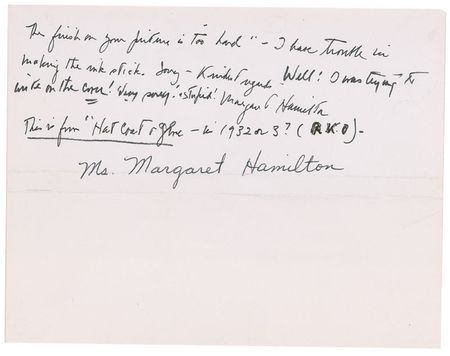 The finish on your picture is "too hard" - I have trouble in
making the ink stick. Sorry - Kindest regards - Well! I was trying to
write on the cover! Very sorry! & stupid! Margaret Hamilton
This is from "Hat Coat & Glove - in 1932 or 3? (RKO) -
Ms. Margaret Hamilton